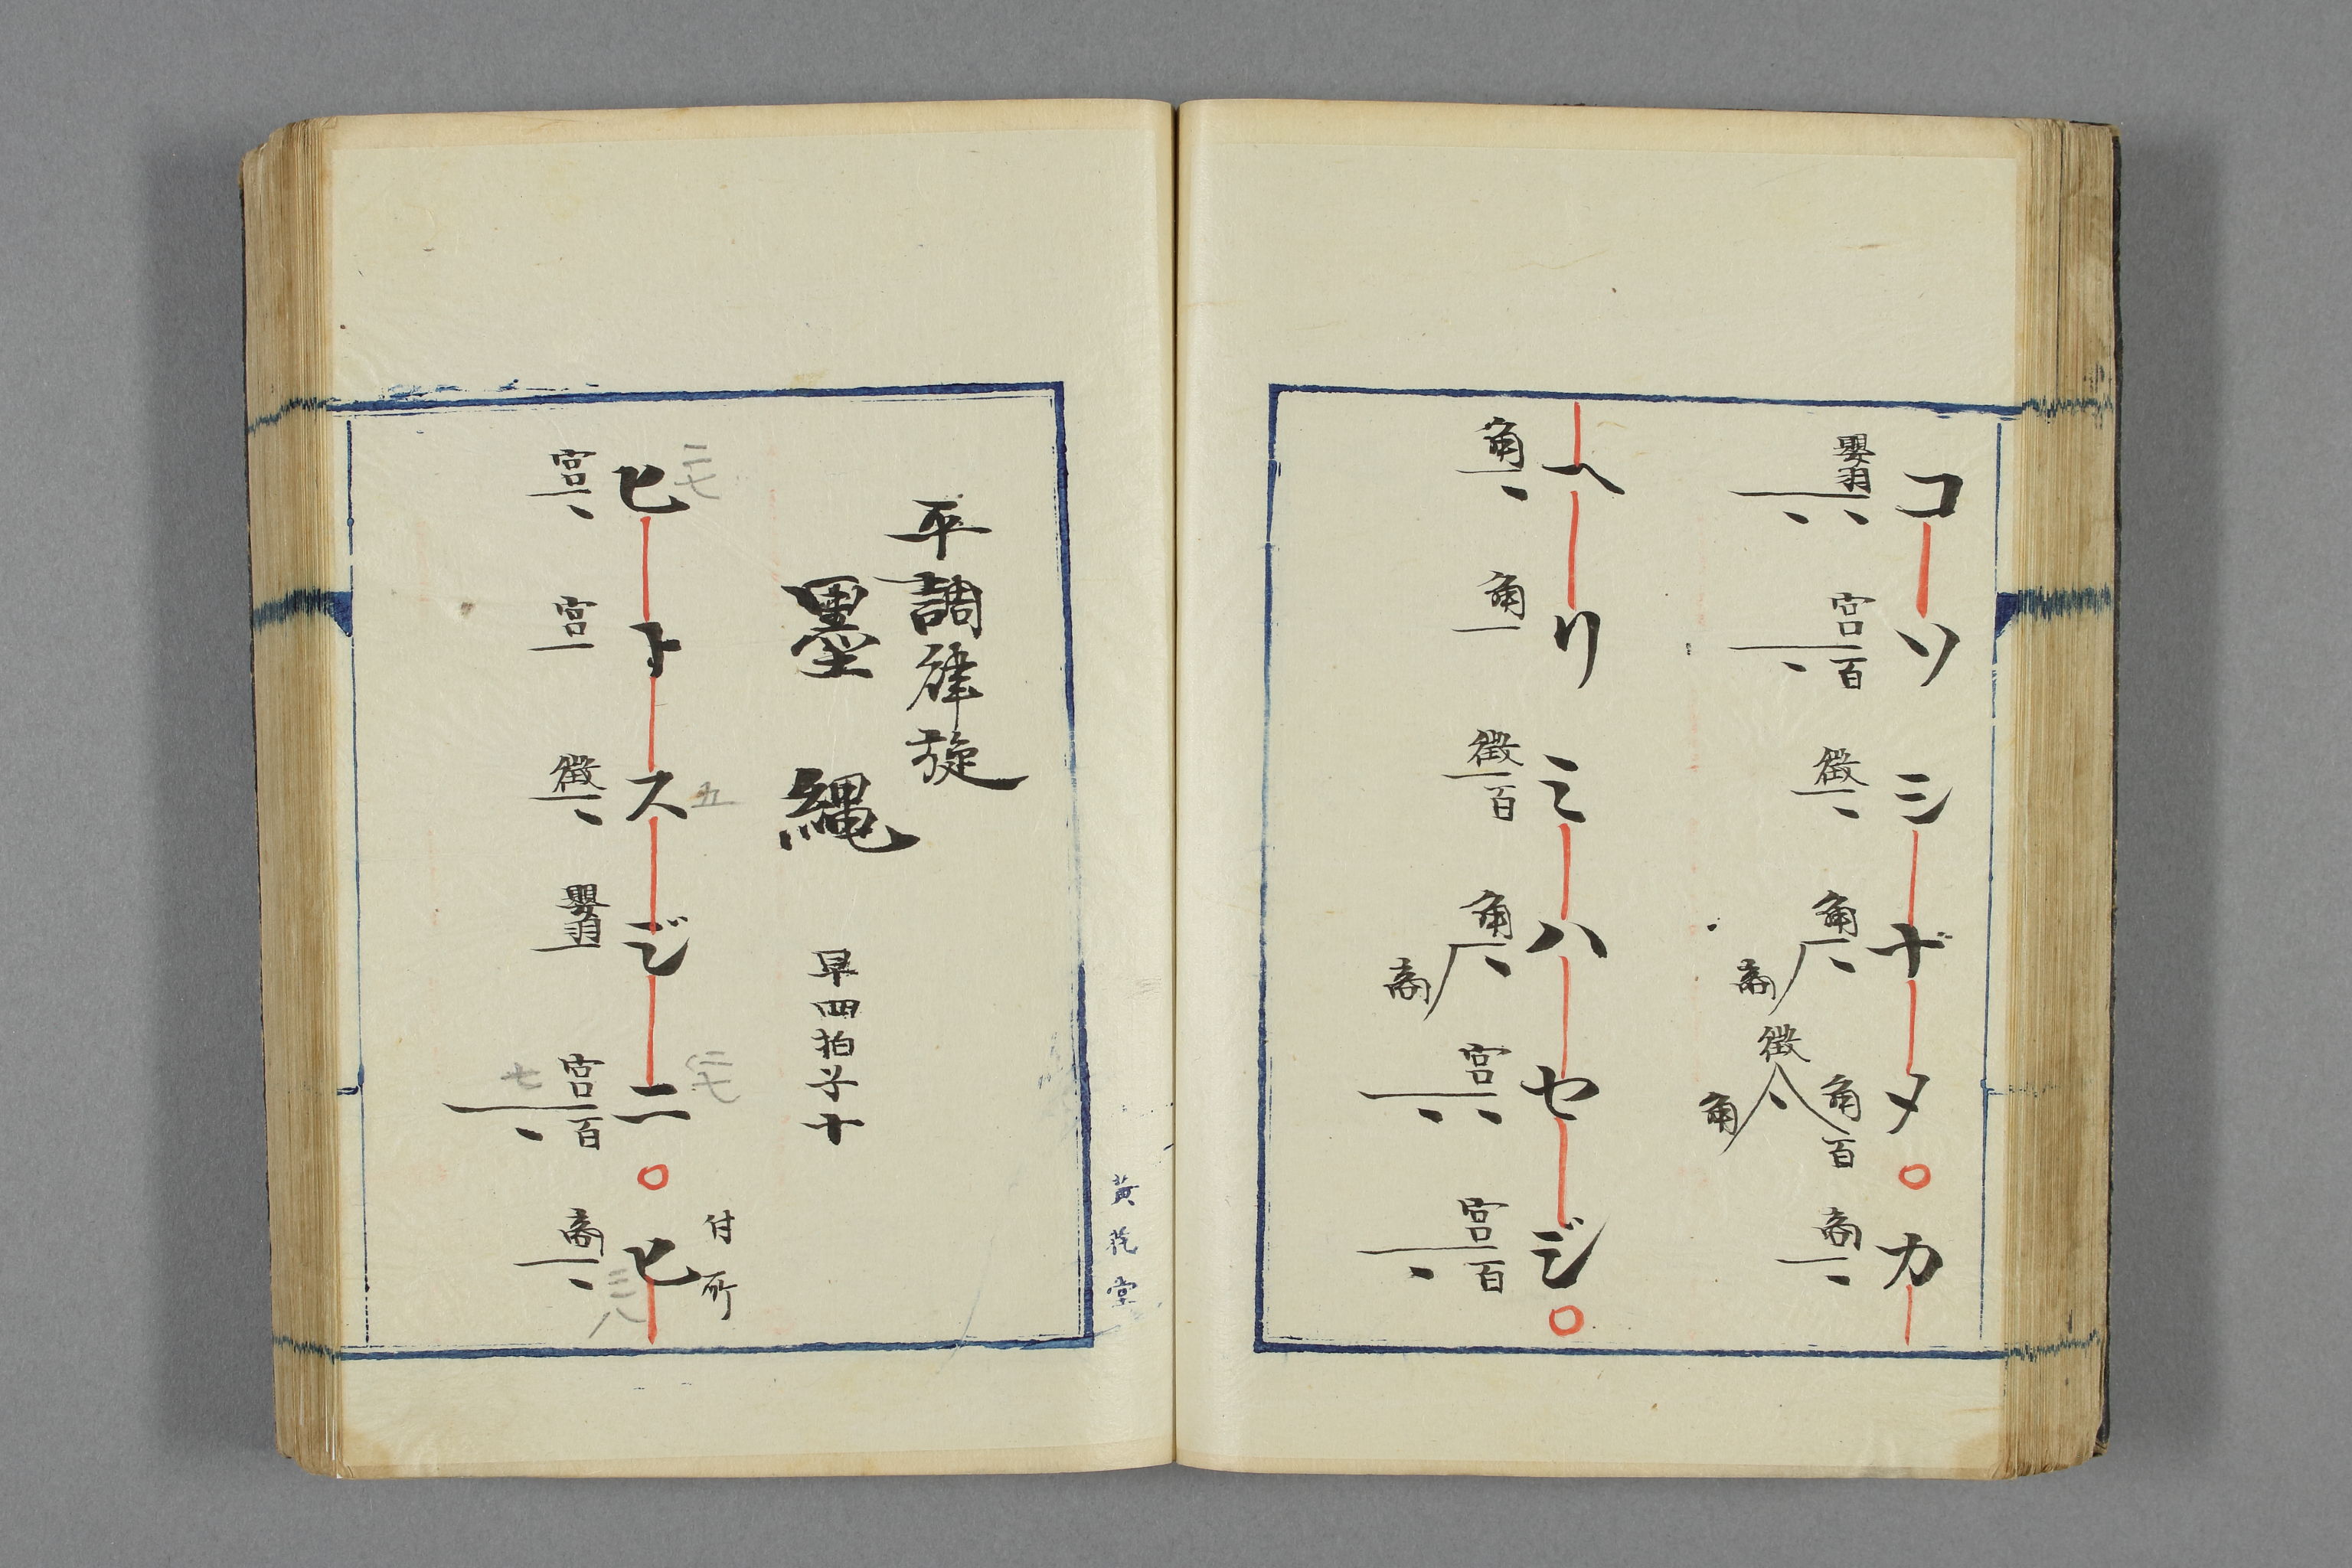 コソシナメ○カ
嬰羽 宮百 徴 角商 徴角角百 商
ヘリミハヤジ○
角 角 徴百 角商 宮 宮百
平調律旋
墨縄 早四拍子十
付所
ヒトスジニ○ヒ
宮 宮 徴 嬰羽 宮百 商
五
七
黄花堂